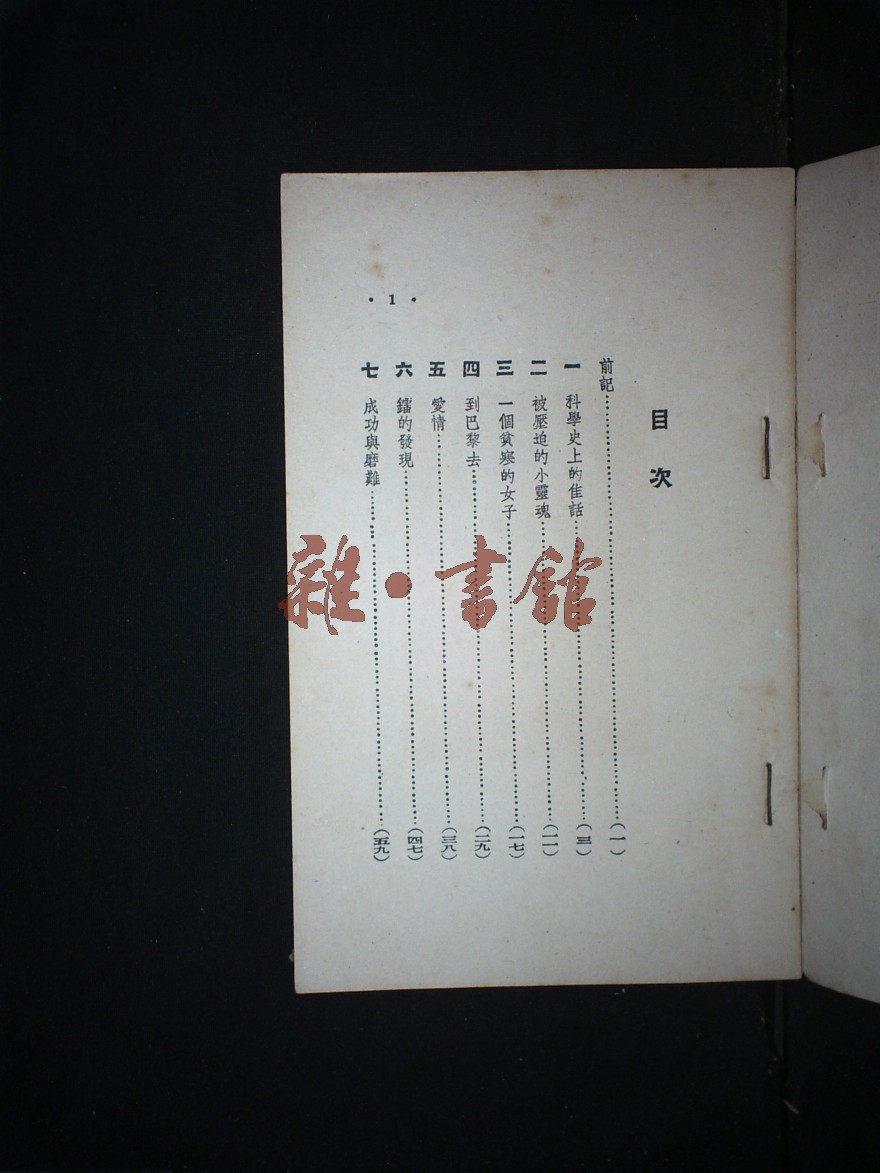 目次
前記……(一)
一 科學史上的佳話……(三)
二 被壓迫的小靈魂……(一一)
三 一個貧寒的女子……(一七)
四 到巴黎去……(二九)
五 愛情……(三八)
六 鐳的發現……(四七)
七 成功與磨難……(五九)
• 1 •
雜•書館